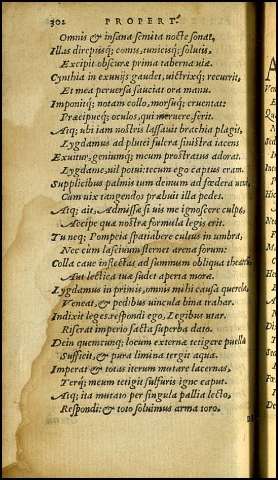 302 PROPERT.
Omnis & insana semita nocte sonat,
Illas direptisq; comis, tunicisq; solutis,
Excipit obscuræ prima taberna uiæ.
Cynthia in exuuijs gaudet, uictrixq; recurrit,
Et mea peruersa sauciat ora manu.
Imponitq; notam collo, morsuq; cruentat:
Præcipueq; oculos, qui meruere, ferit.
Atq; ubi iam nostris lassauit brachia plagis,
Lygdamus ad plutei fulcra sinistra iacens
Exuitur, geniumq; meum prostratus adorat.
Lygdame, nil potui: tecum ego captus eram.
Supplicibus palmis tum demum ad fœdera ueni,
Cum uix tangendos præbuit illa pedes.
Atq; ait, Admissæ si uis me ignoscere culpæ,
Accipe quæ nostræ formula legis erit.
Tu neq; Pompeia spatiabere cultus in umbra,
Nec cum lasciuum sternet arena forum:
Colla caue inflectas ad summum obliqua theatrum
Aut lectica tuæ sudet aperta moræ.
Lygdamus in primis, omnis mihi causa querelæ
Veneat, & pedibus uincula bina trahat.
Indixit leges. respondi ego, Legibus utar.
Riserat imperio facta superba dato.
Dein quemcunq; locum externæ tetigere puellæ
Sufficit, & pura limina tergit aqua.
Imperat & totas iterum mutare lacernas,
Terq; meum tetigit sulfuris igne caput.
Atq; ita mutato per singula pallia lecto,
Respondi: & toto soluimus arma toro.